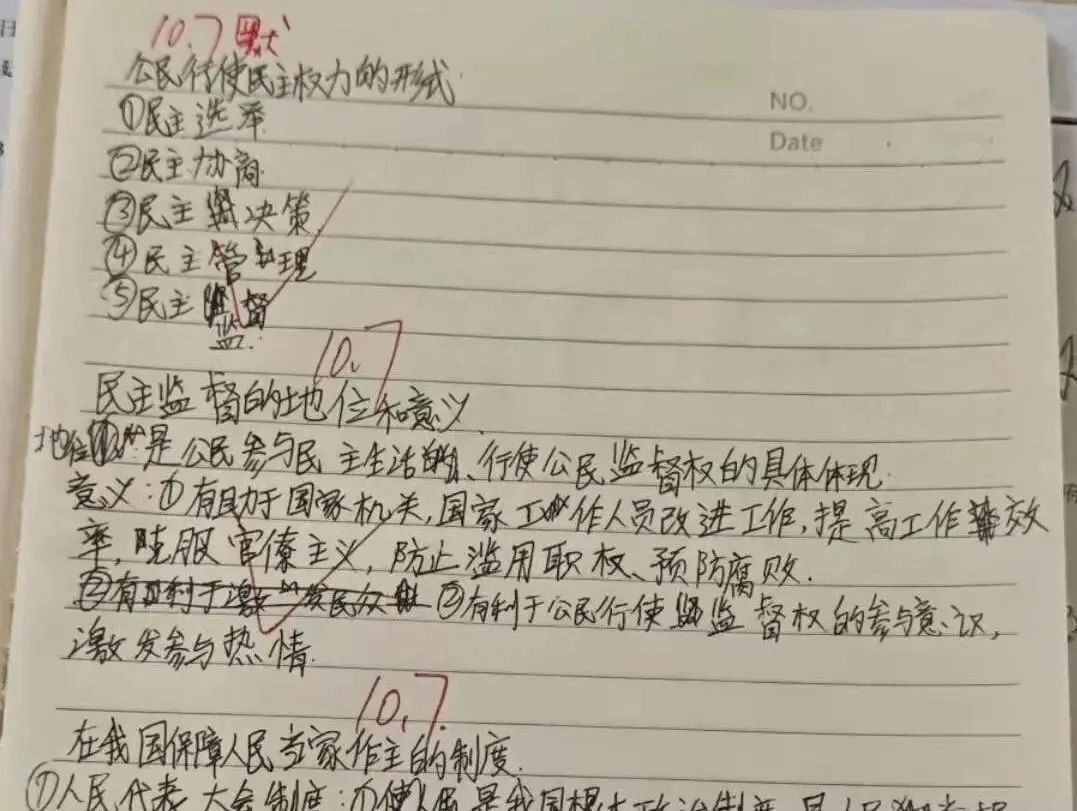 10.7 默
公民行使民主权力的形式
NO.
①民主选举
Date
②民主协商
③民主决策
④民主管理
⑤民主监督
10.7
民主监督的地位和意义
地位：是公民参与民主生活的、行使公民监督权的具体体现
意义：①有助于国家机关，国家工作人员改进工作，提高工作效
率，克服官僚主义，防止滥用职权、预防腐败.
②有利于激发民众 ②有利于公民行使监督权的参与意识，
激发参与热情.
10.7
在我国保障人民当家作主的制度.
①人民代表大会制度：①
是我国根本政治制度